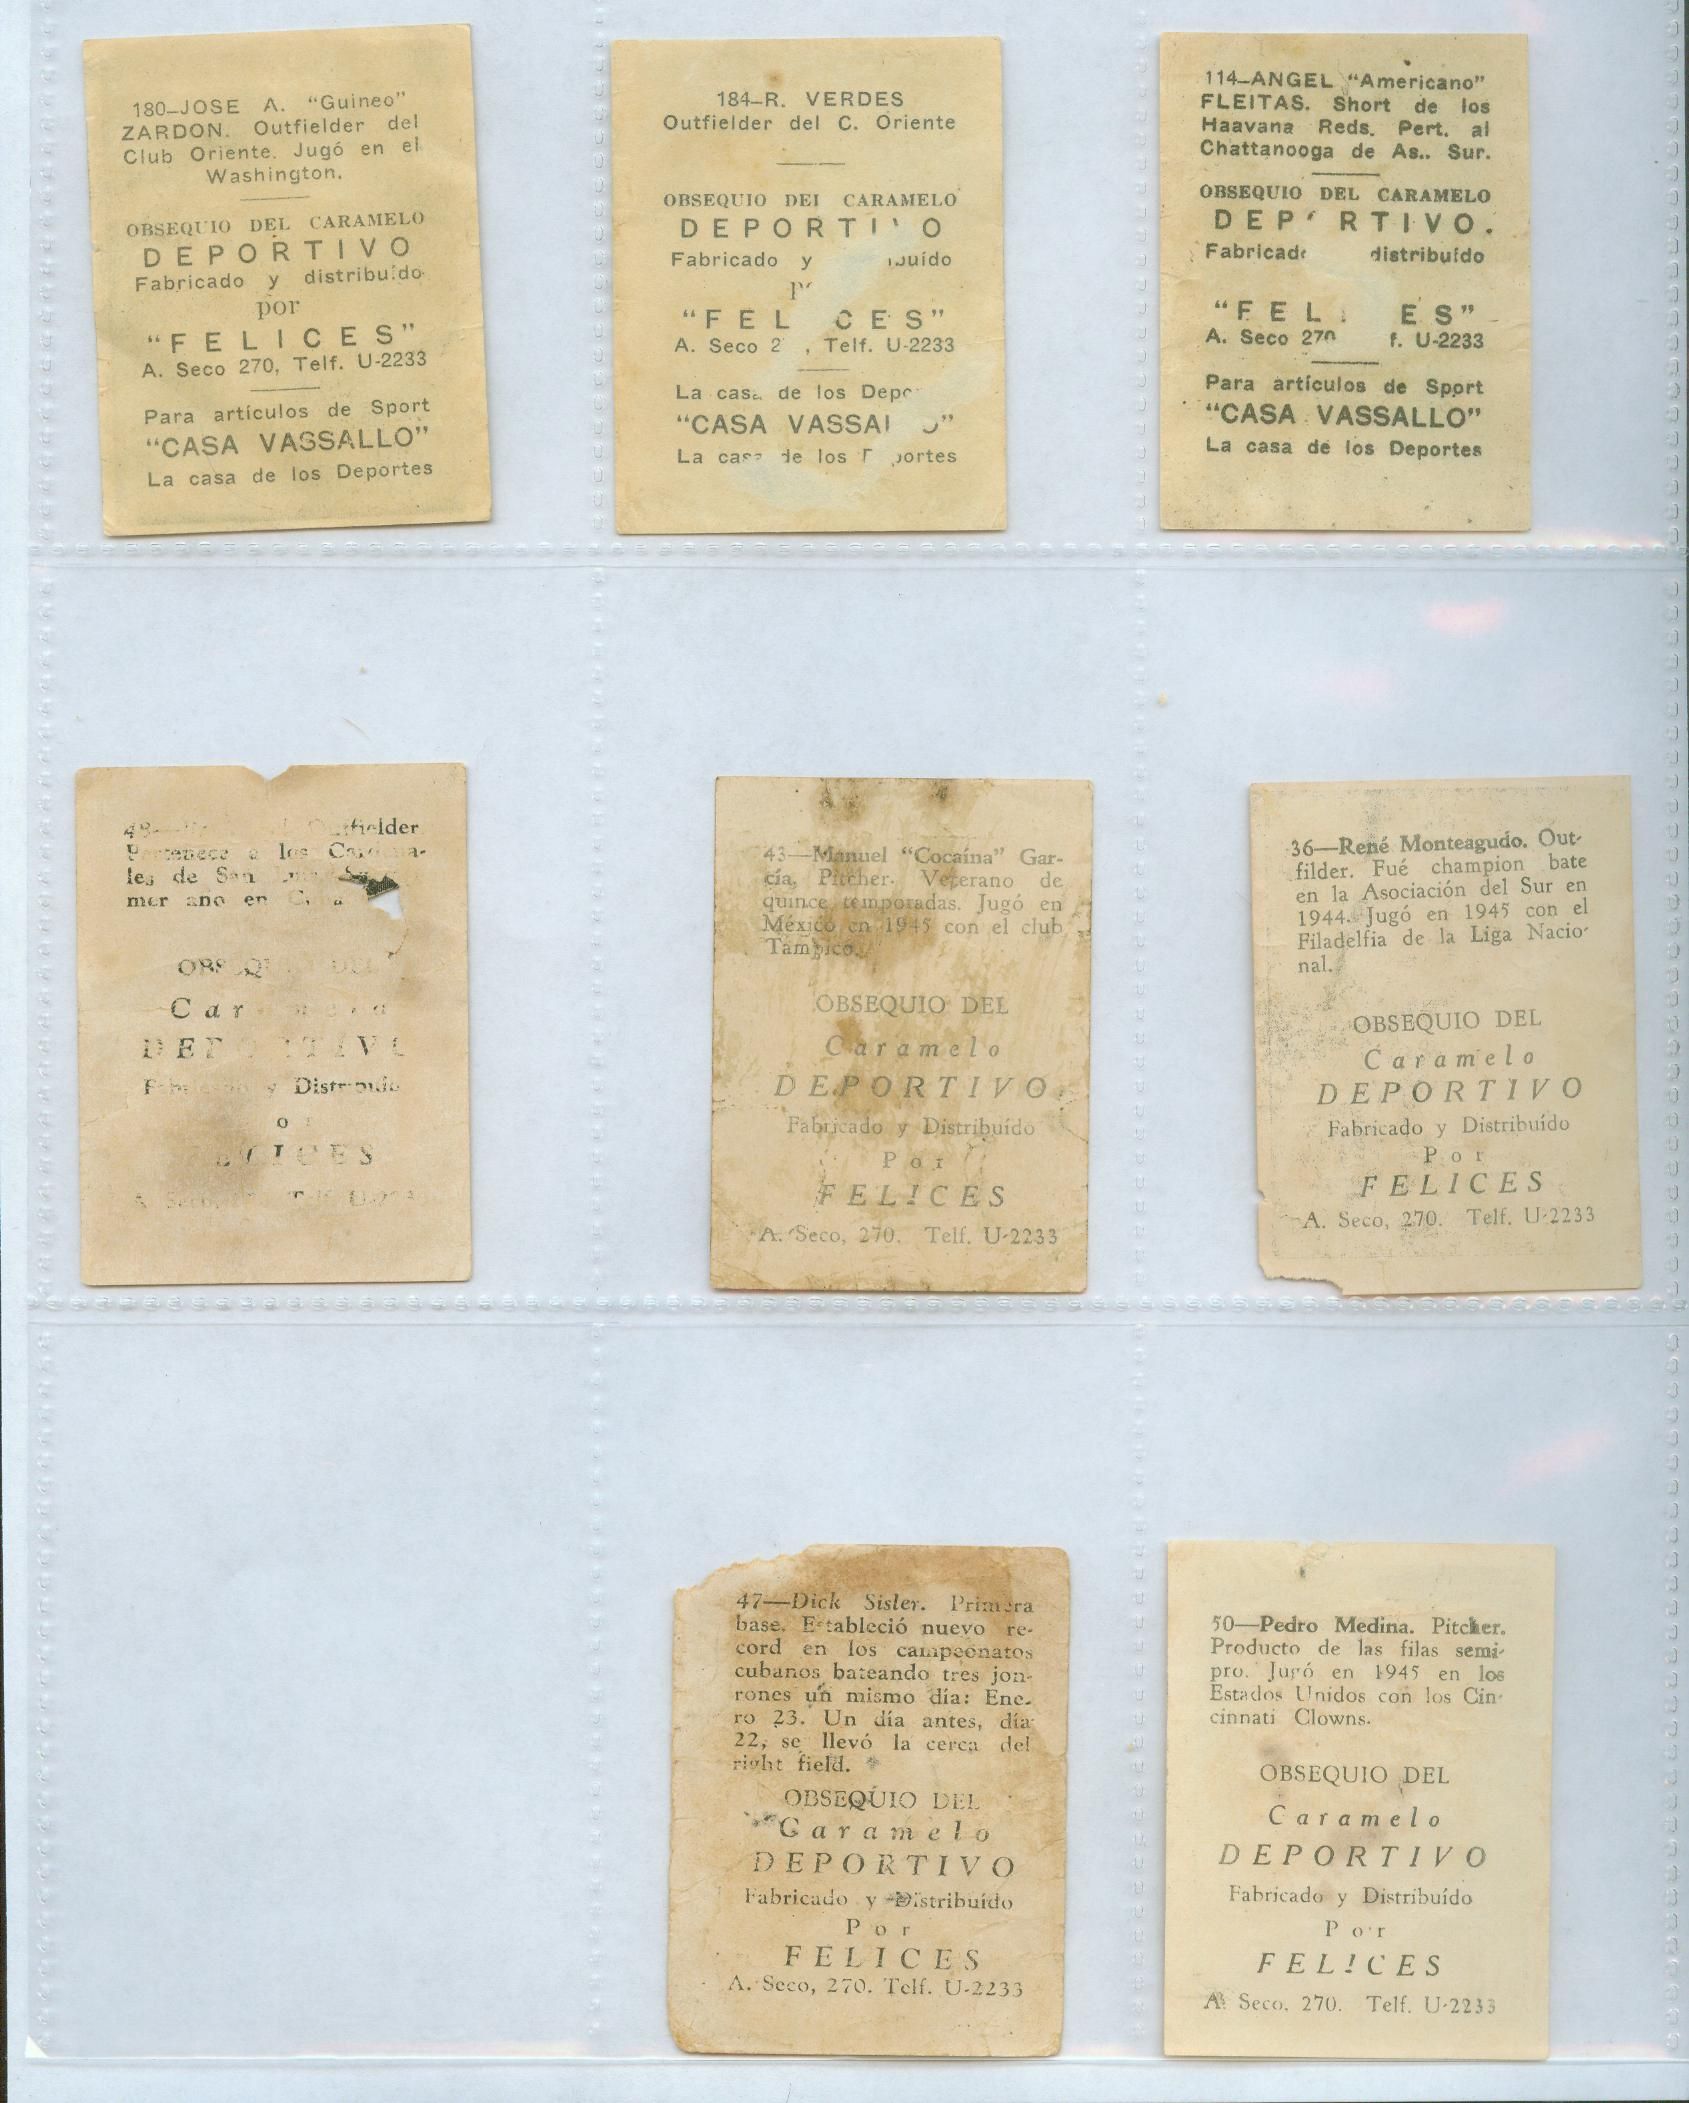 180—JOSE A. “Guineo”
ZARDON. Outfielder del
Club Oriente. Jugó en el
Washington.
OBSEQUIO DEL CARAMELO
DEPORTIVO
Fabricado y distribuído
por
“FELICES”
A. Seco 270, Telf. U-2233
Para artículos de Sport
“CASA VASSALLO”
La casa de los Deportes
184—R. VERDES
Outfielder del C. Oriente
OBSEQUIO DEL CARAMELO
DEPORTI O
Fabricado y
“FEL CES”
A. Seco 2 , Telf. U-2233
La casa de los
“CASA
La de los
114—ANGEL “Americano”
FLEITAS. Short de los
Haavana Reds. Pert. al
Chattanooga de As.. Sur.
OBSEQUIO DEL CARAMELO
DEP RTIVO.
distribuído
“FEL ES”
A. Seco 270 f. U-2233
Para artículos de Sport
“CASA VASSALLO”
La casa de los Deportes
48— Outfielder
Pertenece a los Cardena-
les de San
mer año en
OBSEQ
Car
DEPO TIV
y Distribuído
ICES
A. Seco,
43—Manuel “Cocaína” Gar-
cía, Pitcher. Veterano de
quince temporadas. Jugó en
México en 1945 con el club
Tampico.
OBSEQUIO DEL
Caramelo
DEPORTIVO
Fabricado y Distribuído
Por
FELICES
A. Seco, 270. Telf. U-2233
36—René Monteagudo. Out-
filder. Fué champion bate
en la Asociación del Sur en
1944. Jugó en 1945 con el
Filadelfia de la Liga Nacio-
nal.
OBSEQUIO DEL
Caramelo
DEPORTIVO
Fabricado y Distribuído
Por
FELICES
A. Seco, 270. Telf. U-2233
47—Dick Sisler. Primera
base. Estableció nuevo re-
cord en los campeonatos
cubanos bateando tres jon-
rones un mismo día: Ene-
ro 23. Un día antes, día
22, se llevó la cerca del
right field.
OBSEQUIO DEL
Caramelo
DEPORTIVO
Fabricado y Distribuído
Por
FELICES
A. Seco, 270. Telf. U-2233
50—Pedro Medina. Pitcher.
Producto de las filas semi-
pro. Jugó en 1945 en los
Estados Unidos con los Cin-
cinnati Clowns.
OBSEQUIO DEL
Caramelo
DEPORTIVO
Fabricado y Distribuído
Por
FELICES
A. Seco, 270. Telf. U-2233